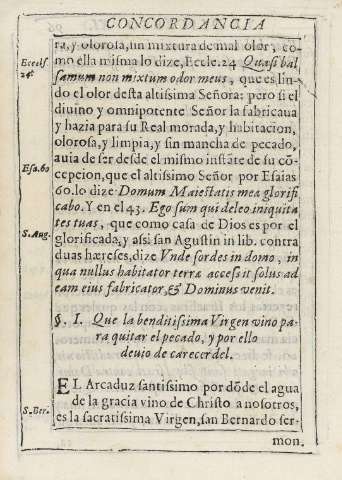 CONCORDANCIA
ra, y olorosa, sin mixtura de mal olor, co-
mo ella misma lo dize, Eccle. 24 Quasi bal
Eccles. 24.
samum non mixtum odor meus, que es lin-
do el olor desta altissima Señora: pero si el
diuino y omnipotente Señor la fabricaua
y hazia para su Real morada, y habitacion,
olorosa, y limpia, y sin mancha de pecado,
auia de ser desde el mismo instãte de su cõ-
cepcion, que el altissimo Señor por Esaias
Esa. 60
60. lo dize Domum Maiestatis meæ glorifi
cabo. Y en el 43. Ego sum qui deleo iniquita
tes tuas, que como casa de Dios es por el
S. Aug.
glorificada, y assi san Agustin in lib. contra
duas hæreses, dize Vnde sordes in domo, in
qua nullus habitator terræ accessit solus ad
eam eius fabricator, & Dominus venit.
§. I. Que la benditissima Virgen vino pa-
ra quitar el pecado, y por ello
deuio de carecer del.
EL Arcaduz santissimo por dõde el agua
de la gracia vino de Christo a nosotros,
S. Ber.
es la sacratissima Virgen, san Bernardo ser-
mon.